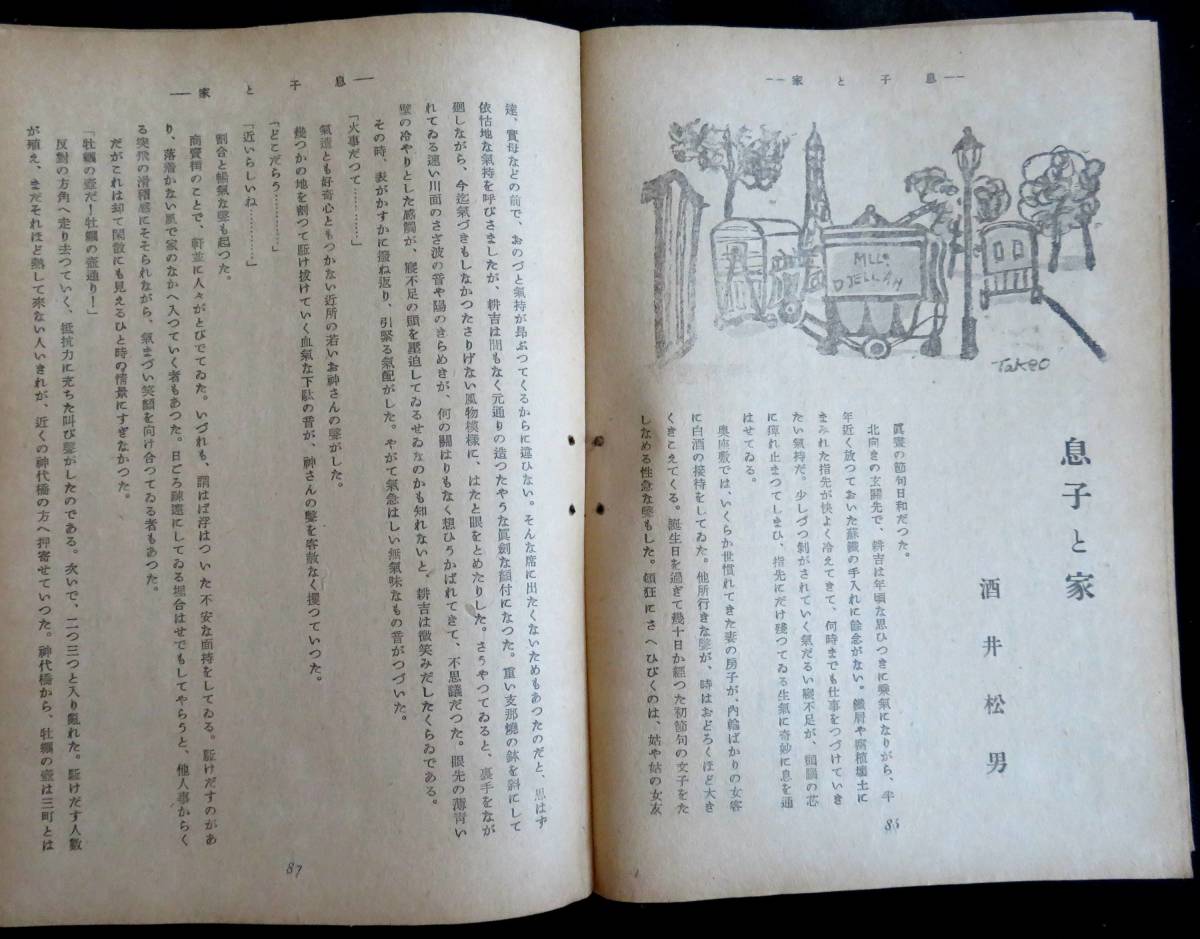 ―息子と家――
MLLE.
DJELLAH
Takeo
息子と家
酒井松男
眞晝の節句日和だつた。
北向きの玄關先で、耕吉は年頃な思ひつきに乘氣になりながら、半
年近く放つておいた蘇鐵の手入れに餘念がない。鐵屑や腐植壤土に
まみれた指先が快よく冷えてきて、何時までも仕事をつづけていき
たい氣持だ。少しづつ剝がされていく氣だるい寢不足が、頭腦の芯
に痺れ止まつてしまひ、指先にだけ殘つてゐる生氣に奇妙に息を通
はせてゐる。
奧座敷では、いくらか世慣れてきた妻の房子が內輪ばかりの女客
に白酒の接待をしてゐた。他所行きな聲が、時はおどろくほど大き
くきこえてくる。誕生日を過ぎて幾十日か經つた初節句の文子をた
しなめる性急な聲もした。頓狂にさへひびくのは、姑や姑の女友
86
―息子と家―
達、實母などの前で、おのづと氣持が昂ぶつてくるからに違ひない。そんな席に出たくないためもあつたのだと、思はず
依怙地な氣持を呼びさましたが、耕吉は間もなく元通りの造つたやうな眞劍な顏付になつた。重い支那燒の鉢を斜にして
廻しながら、今迄氣づきもしなかつたさりげない風物模樣に、はたと眼をとめたりした。さうやつてゐると、裏手をなが
れてゐる速い川面のさざ波の音や陽のきらめきが、何の關はりもなく想ひうかばれてきて、不思議だつた。眼先の薄靑い
壁の冷やりとした感觸が、寢不足の頭を壓迫してゐるせゐなのかも知れないと、耕吉は微笑みだしたくらゐである。
その時、表がかすかに撥ね返り、引緊る氣配がした。やがて氣急はしい無氣味なもの音がつづいた。
「火事だつて…………」
氣遣とも好奇心ともつかない近所の若いお神さんの聲がした。
幾つかの地を割つて駈け拔けていく血氣な下駄の音が、神さんの聲を容赦なく攫つていつた。
「どこだらう…………」
「近いらしいね…………」
割合と暢氣な聲も起つた。
商賣街のことで、軒並に人々がとびでてゐた。いづれも、謂はば浮はついた不安な面持をしてゐる。駈けだすのがあ
り、落着かない風で家のなかへ入つていく者もあつた。日ごろ疎遠にしてゐる埋合はせでもしてやらうと、他人事からく
る突飛の滑稽感にそそられながら、氣まづい笑顏を向け合つてゐる者もあつた。
だがこれは却て閑散にも見えるひと時の情景にすぎなかつた。
「牡蠣の壺だ！牡蠣の壺通り！」
反對の方角へ走り去つていく、抵抗力に充ちた叫び聲がしたのである。次いで、二つ三つと入り亂れた。駈けだす人數
が殖え、まだそれほど熱して來ない人いきれが、近くの神代橋の方へ押寄せていつた。神代橋から、牡蠣の壺は三町とは
87